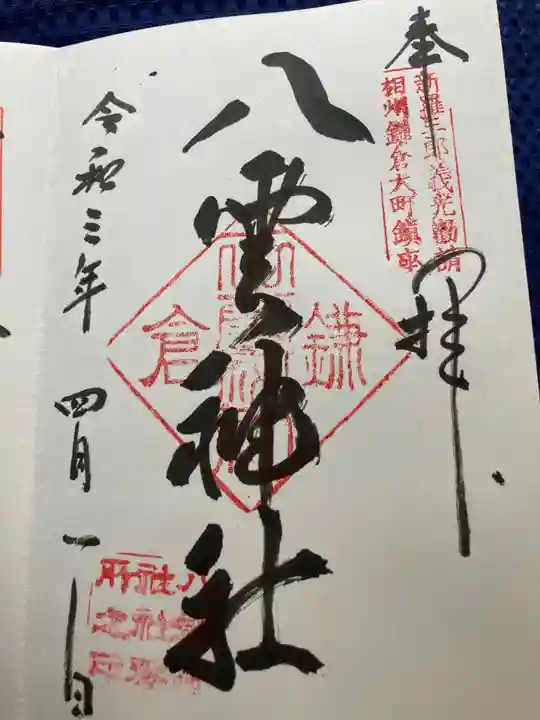 奉拝
新羅三郎義光勧請
相州鎌倉大町鎮座
八雲神社
鎌倉
令和三年 四月一日
八雲神
社社務
所之印